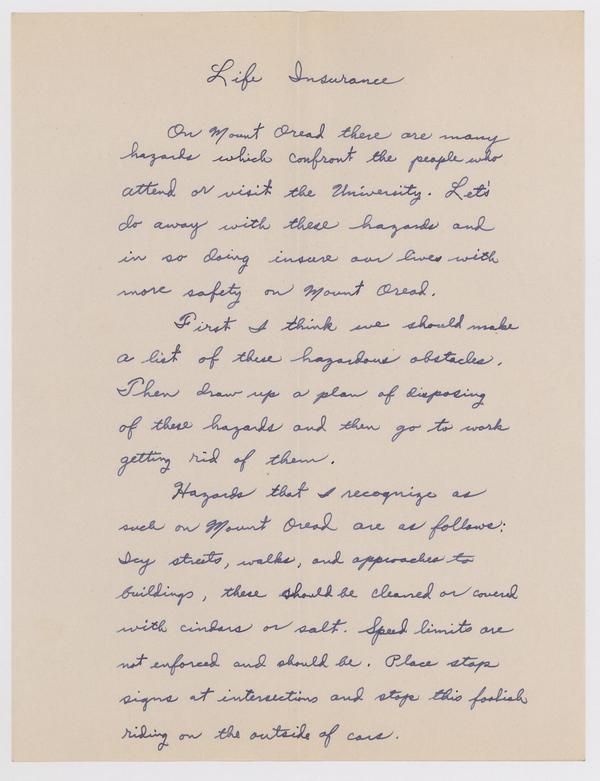 Life Insurance
On Mount Oread there are many
hazards which confront the people who
attend or visit the University. Let's
do away with these hazards and
in so doing insure our lives with
more safety on Mount Oread.
First I think we should make
a list of these hazardous obstacles.
Then draw up a plan of disposing
of these hazards and then go to work
getting rid of them.
Hazards that I recognize as
such on Mount Oread are as follows:
Icy streets, walks, and approaches to
buildings, these should be cleaned or covered
with cindars or salt. Speed limits are
not enforced and should be. Place stop
signs at intersections and stop this foolish
riding on the outside of cars.